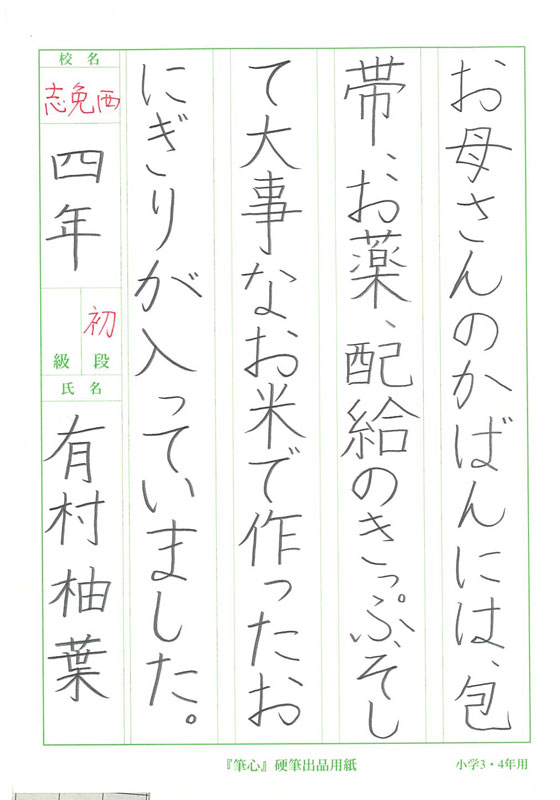 お母さんのかばんには、包
帯、お薬、配給のきっぷ、そし
て大事なお米で作ったお
にぎりが入っていました。
校名
志免西
四年
初
級 段
氏名
有村柚葉
『筆心』硬筆出品用紙
小学3・4年用